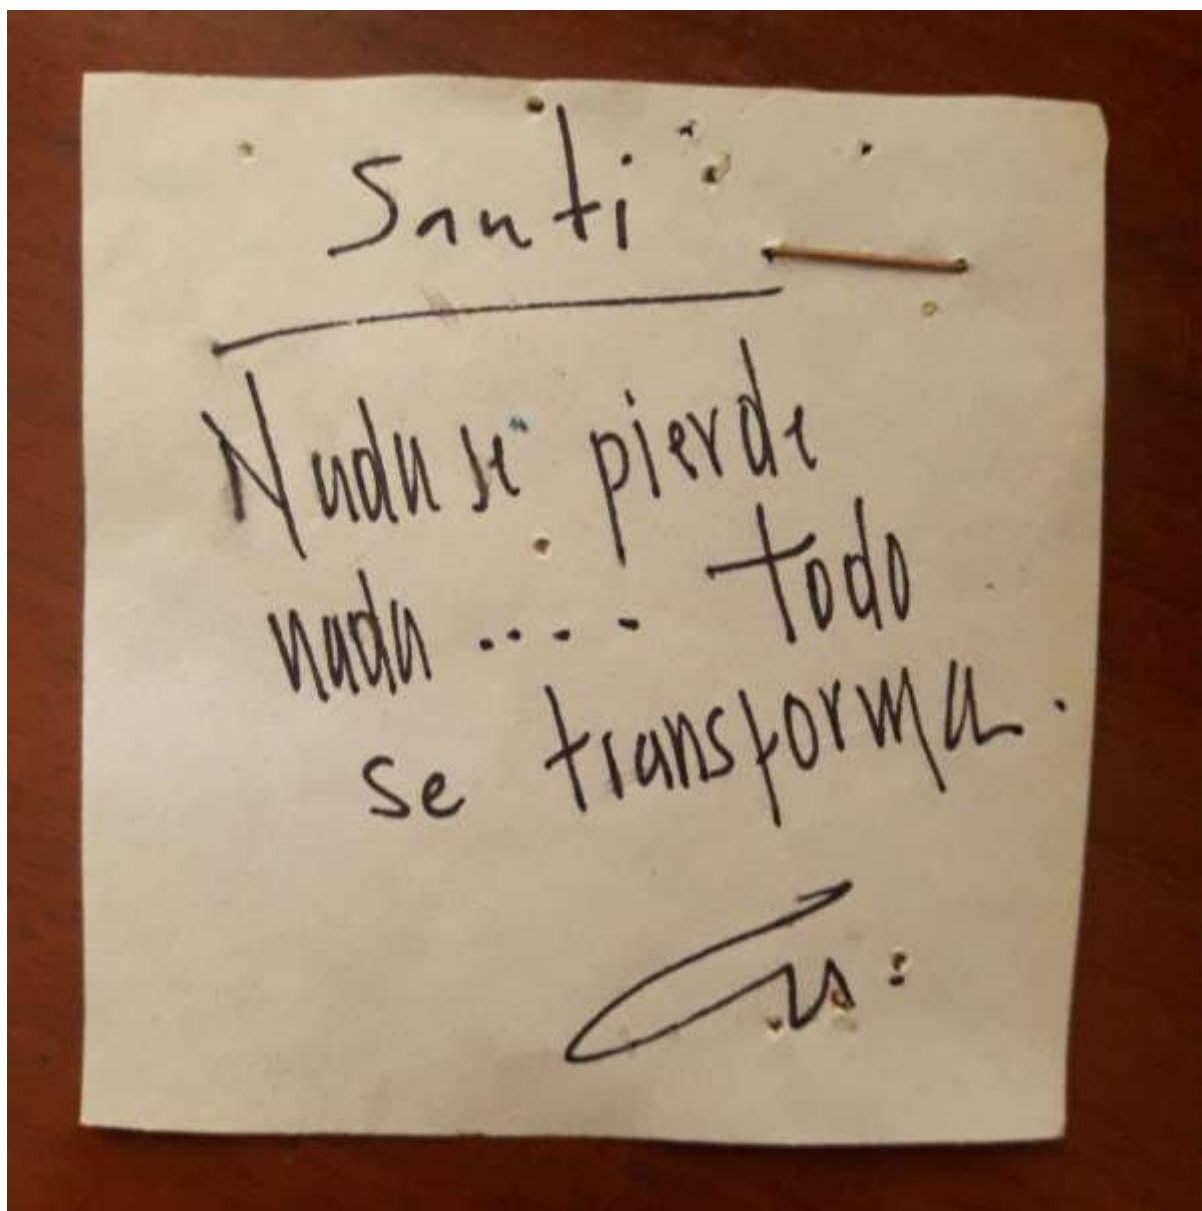 Santi
Nada se pierde
nada .... todo
se transforma.